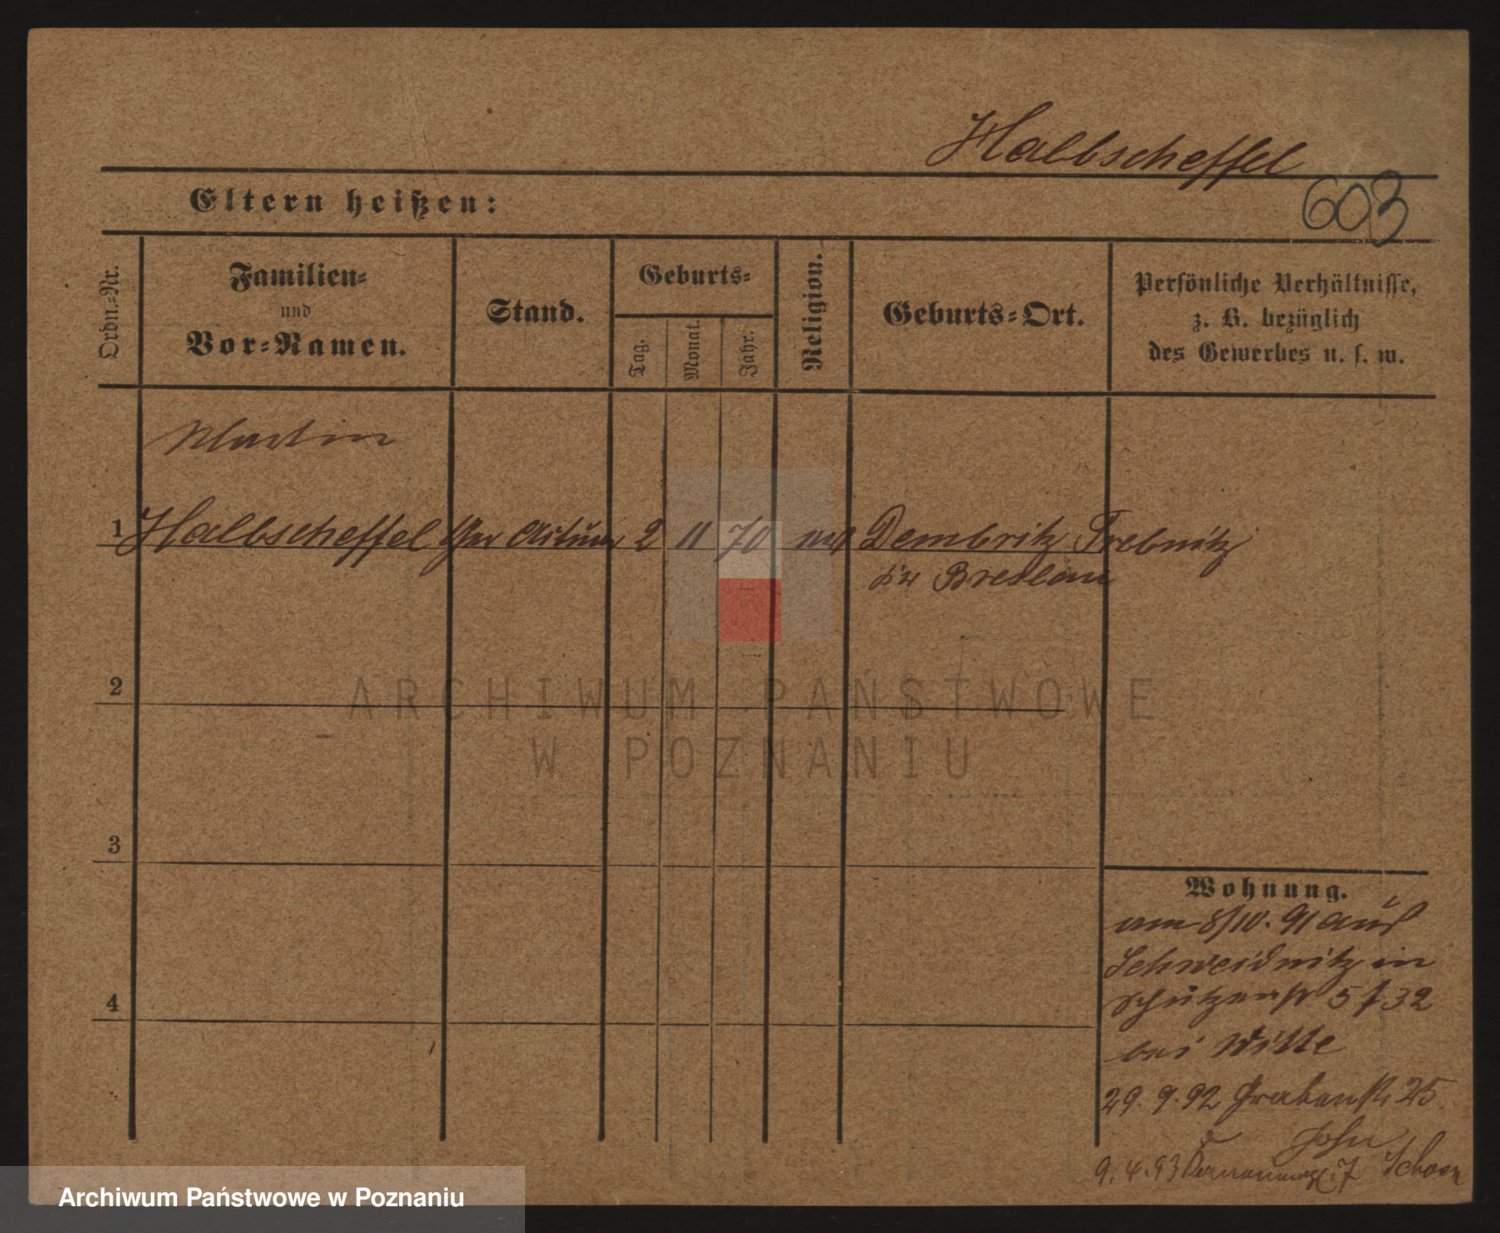 Halbscheffel
603
Eltern heißen:
Ordn.-Nr.
Familien-
und
Vor-Namen.
Stand.
Geburts-
Tag.
Monat.
Jahr.
Religion.
Geburts-Ort.
Persönliche Verhältnisse,
z. B. bezüglich
des Gewerbes u. s. w.
Martin
1 Halbscheffel 2 11 70 Dembritz Trebnitz
Breslau
2
ARCHIWUM PAŃSTWOWE
W POZNANIU
3
4
Wohnung.
am 8/10. 91 aus
Schweidnitz in
Schützenstr 5 f 32
bei Witte
29. 9. 92 Grabenstr. 25
John
9. 4. 93 7 Schoen
Archiwum Państwowe w Poznaniu